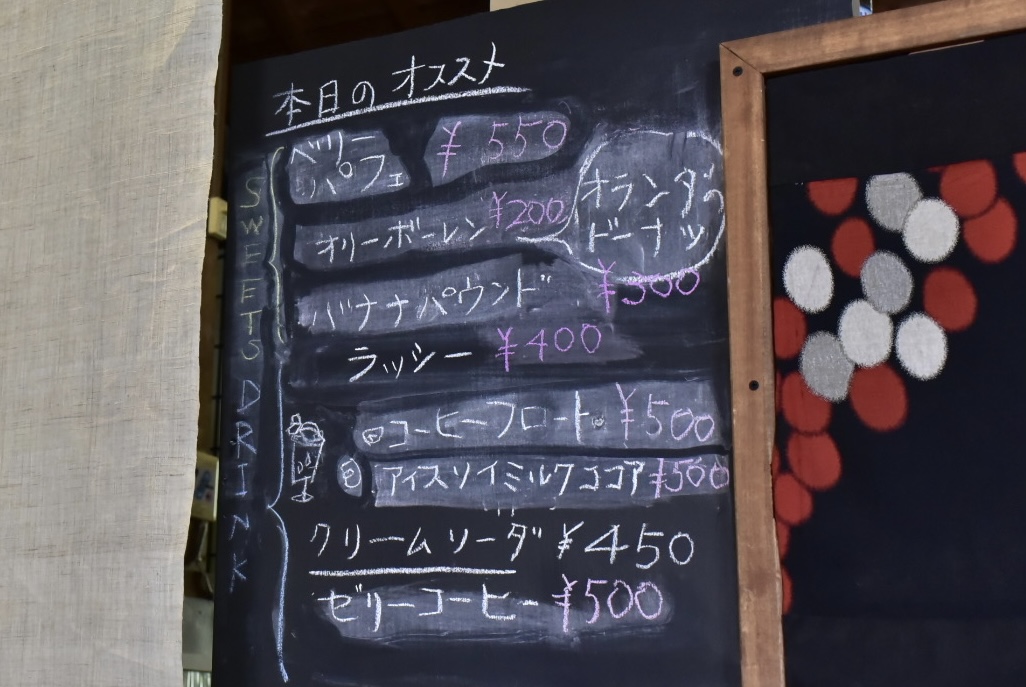 本日のオススメ
ベリー
パフェ
¥550
オリーボーレン ¥200
オランダの
ドーナツ
バナナパウンド ¥300
ラッシー ¥400
コーヒーフロート ¥500
アイスソイミルクココア ¥500
クリームソーダ ¥450
ゼリーコーヒー ¥500
SWEETS
DRINK